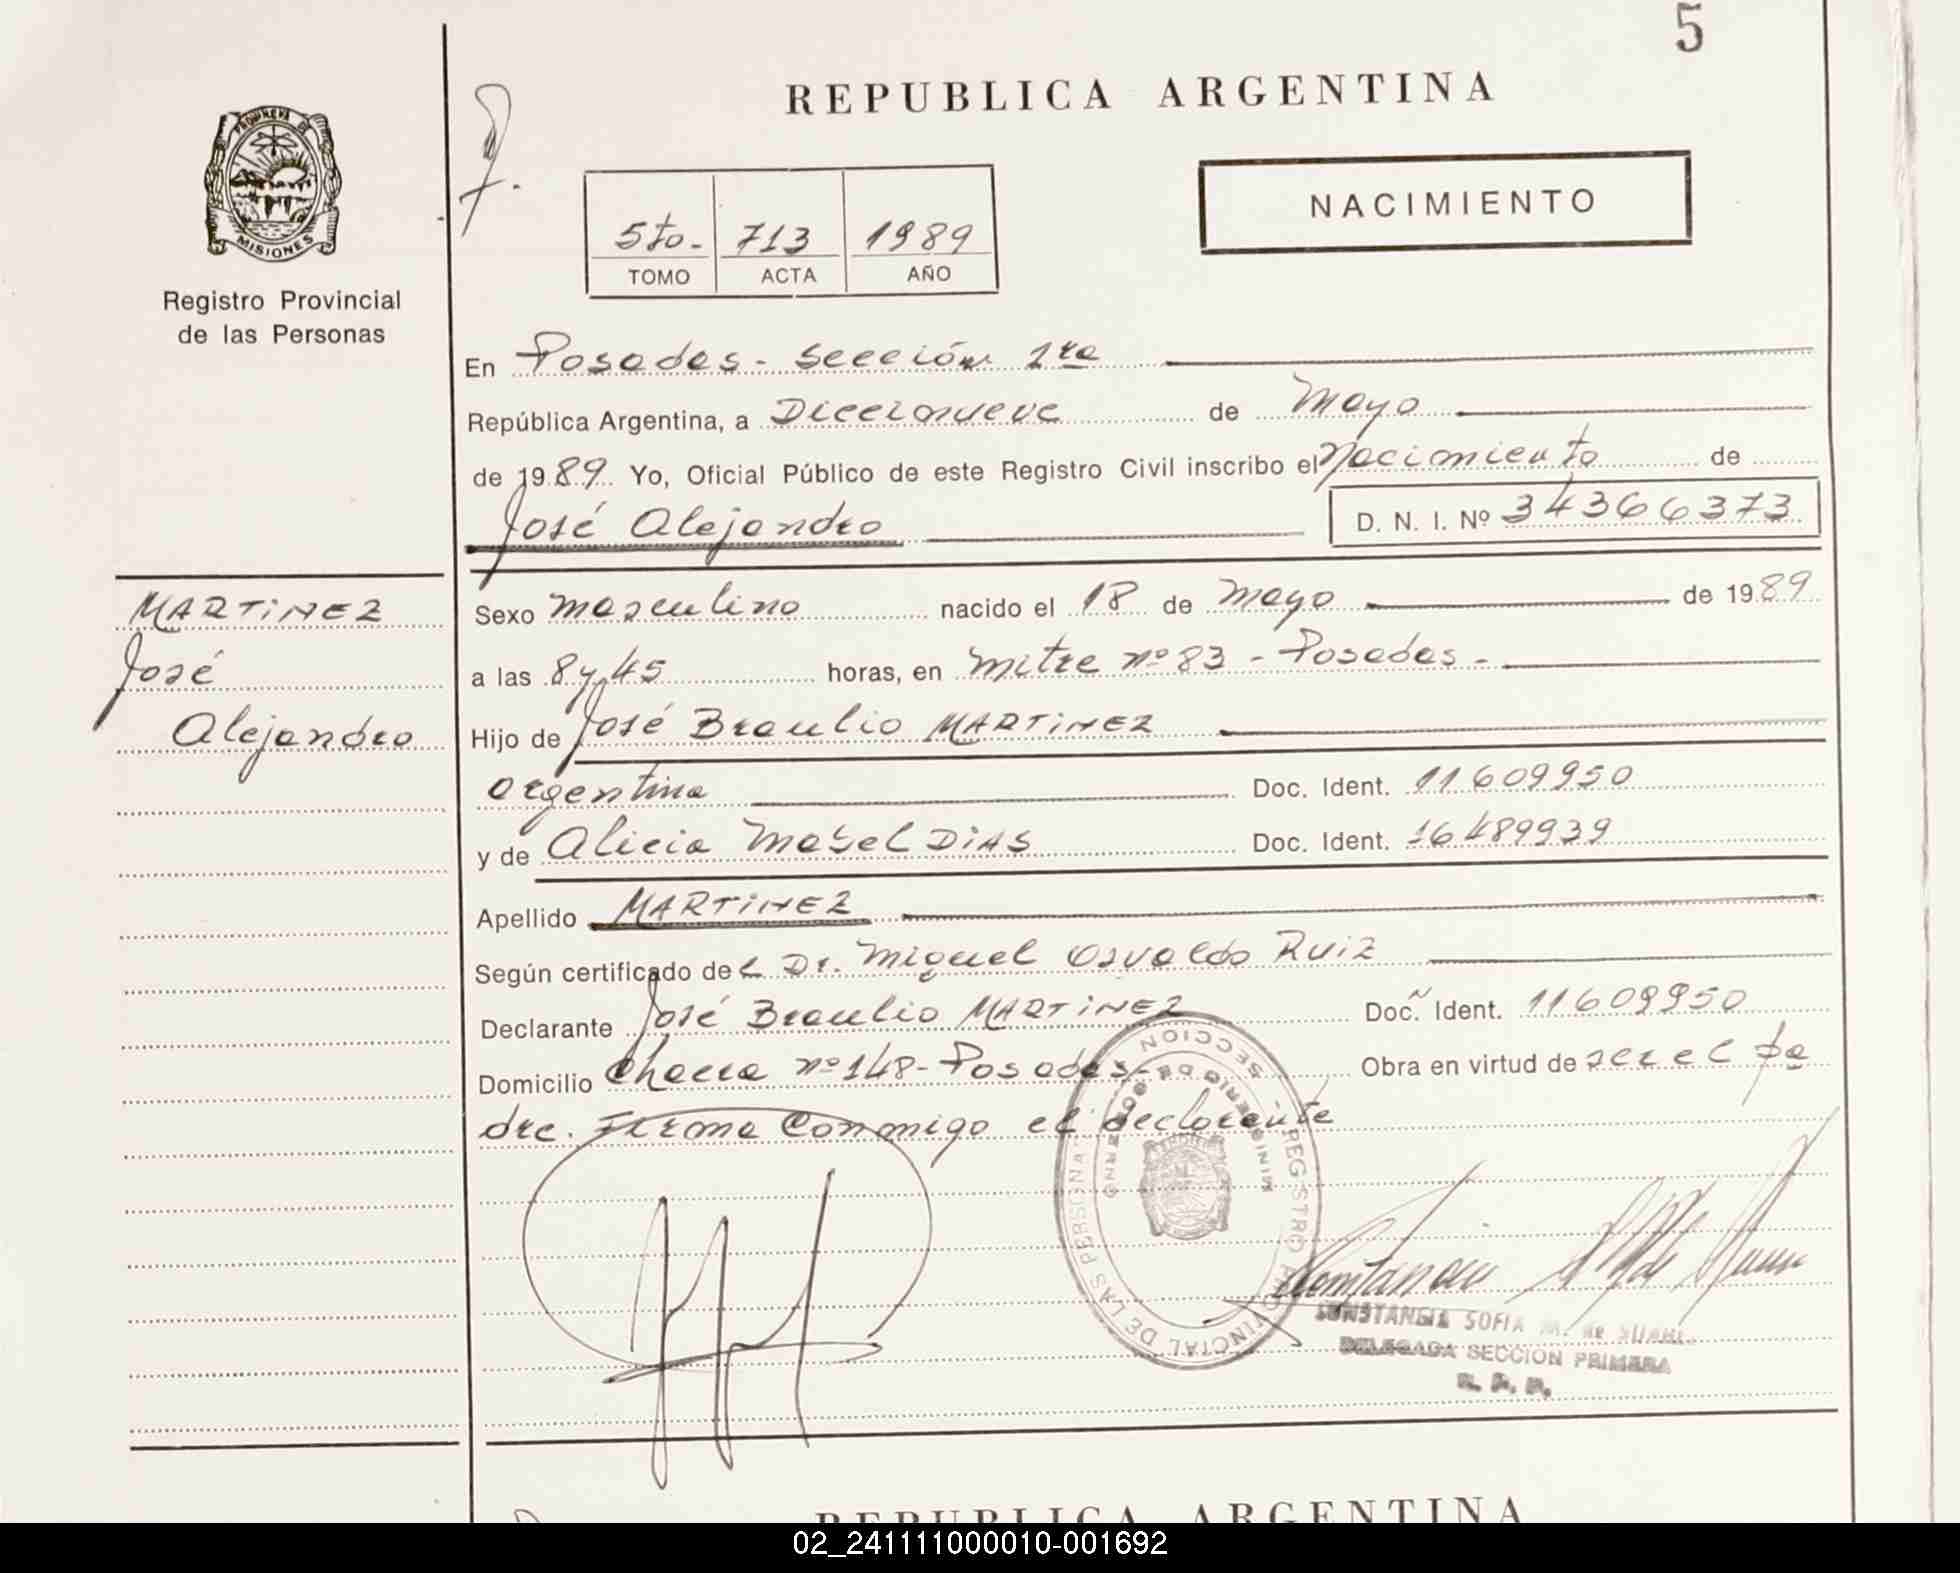 5
REPUBLICA ARGENTINA
PROVINCIA DE
MISIONES
Registro Provincial
de las Personas
NACIMIENTO
5to. 713 1989
TOMO ACTA AÑO
En Posadas - Sección 1ra
República Argentina, a Diecinueve de Mayo
de 1989 Yo, Oficial Público de este Registro Civil inscribo el Nacimiento de
José Alejandro D. N. I. Nº 34366373
MARTINEZ
José
Alejandro
Sexo masculino nacido el 18 de Mayo de 1989
a las 8 y 45 horas, en Mitre nº 83 - Posadas -
Hijo de José Braulio MARTINEZ
argentina Doc. Ident. 11609950
y de Alicia Mabel DIAS Doc. Ident. 16489939
Apellido MARTINEZ
Según certificado del Dr. Miguel Osvaldo Ruiz
Declarante José Braulio MARTINEZ Doc. Ident. 11609950
Domicilio Chacra nº 148 - Posadas - Obra en virtud de ser el pa
dre. Firma Conmigo el declarante
REGISTRO PROVINCIAL DE LAS PERSONAS - SECCION
MINISTERIO DE GOBIERNO
CONSTANCIA SOFIA M. de
DELEGADA SECCION PRIMERA
R. P. P.
REPUBLICA ARGENTINA
02_241111000010-001692